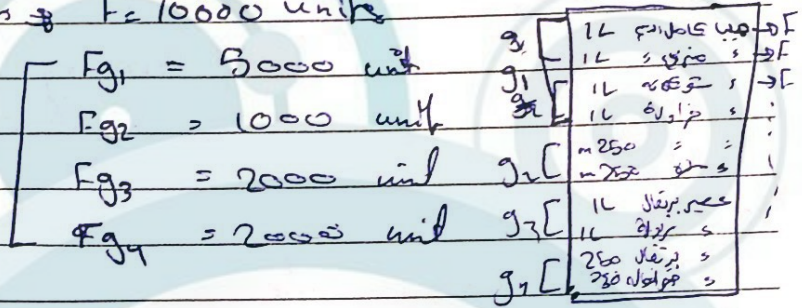 F = 10000 units
Fg1 = 5000 unit
Fg2 = 1000 unit
Fg3 = 2000 unit
Fg4 = 2000 unit
g1 [ 1L حليب كامل الدسم → F
1L " منزوع " → F
1L " → F
1L " فراولة
g2 [ m250 " "
m250 "
g3 [ 1L عصير برتقال
1L "
g4 [ 250 برتقال "
250 "